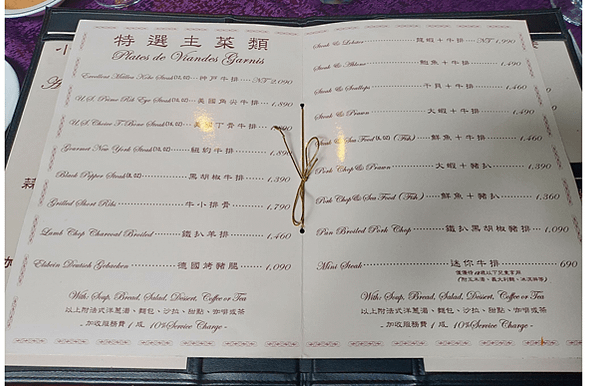 特選主菜類
Plates de Viandes Garnis
Excellent Kobe Steak 神戶牛排 NT 2,090
U.S. Prime Rib Eye Steak 美國角尖牛排 1,890
U.S. Choice T-Bone Steak 美國丁骨牛排
Gourmet New York Steak 紐約牛排 1,890
Black Pepper Steak 黑胡椒牛排 1,390
Grilled Short Ribs 牛小排骨 1,790
Lamb Chop Charcoal Broiled 鐵扒羊排 1,460
Eisbein Deutsch Gebacken 德國烤豬腿 1,090
With: Soup, Bread, Salad, Dessert, Coffee or Tea
以上附法式洋蔥湯、麵包、沙拉、甜點、咖啡或茶
- 加收服務費1成 10%Service Charge -
Steak & Lobster 龍蝦+牛排 NT 1,990
Steak & Abalone 鮑魚+牛排 1,490
Steak & Scallops 干貝+牛排 1,460
Steak & Prawn 大蝦+牛排 1,490
Steak & Sea Food (Fish) 鮮魚+牛排 1,460
Pork Chop & Prawn 大蝦+豬扒 1,390
Pork Chop & Sea Food (Fish) 鮮魚+豬扒 1,360
Pan Broiled Pork Chop 鐵扒黑胡椒豬排 1,090
Mini Steak 迷你牛排 690
With: Soup, Bread, Salad, Dessert, Coffee or Tea
以上附法式洋蔥湯、麵包、沙拉、甜點、咖啡或茶
- 加收服務費1成 10%Service Charge -